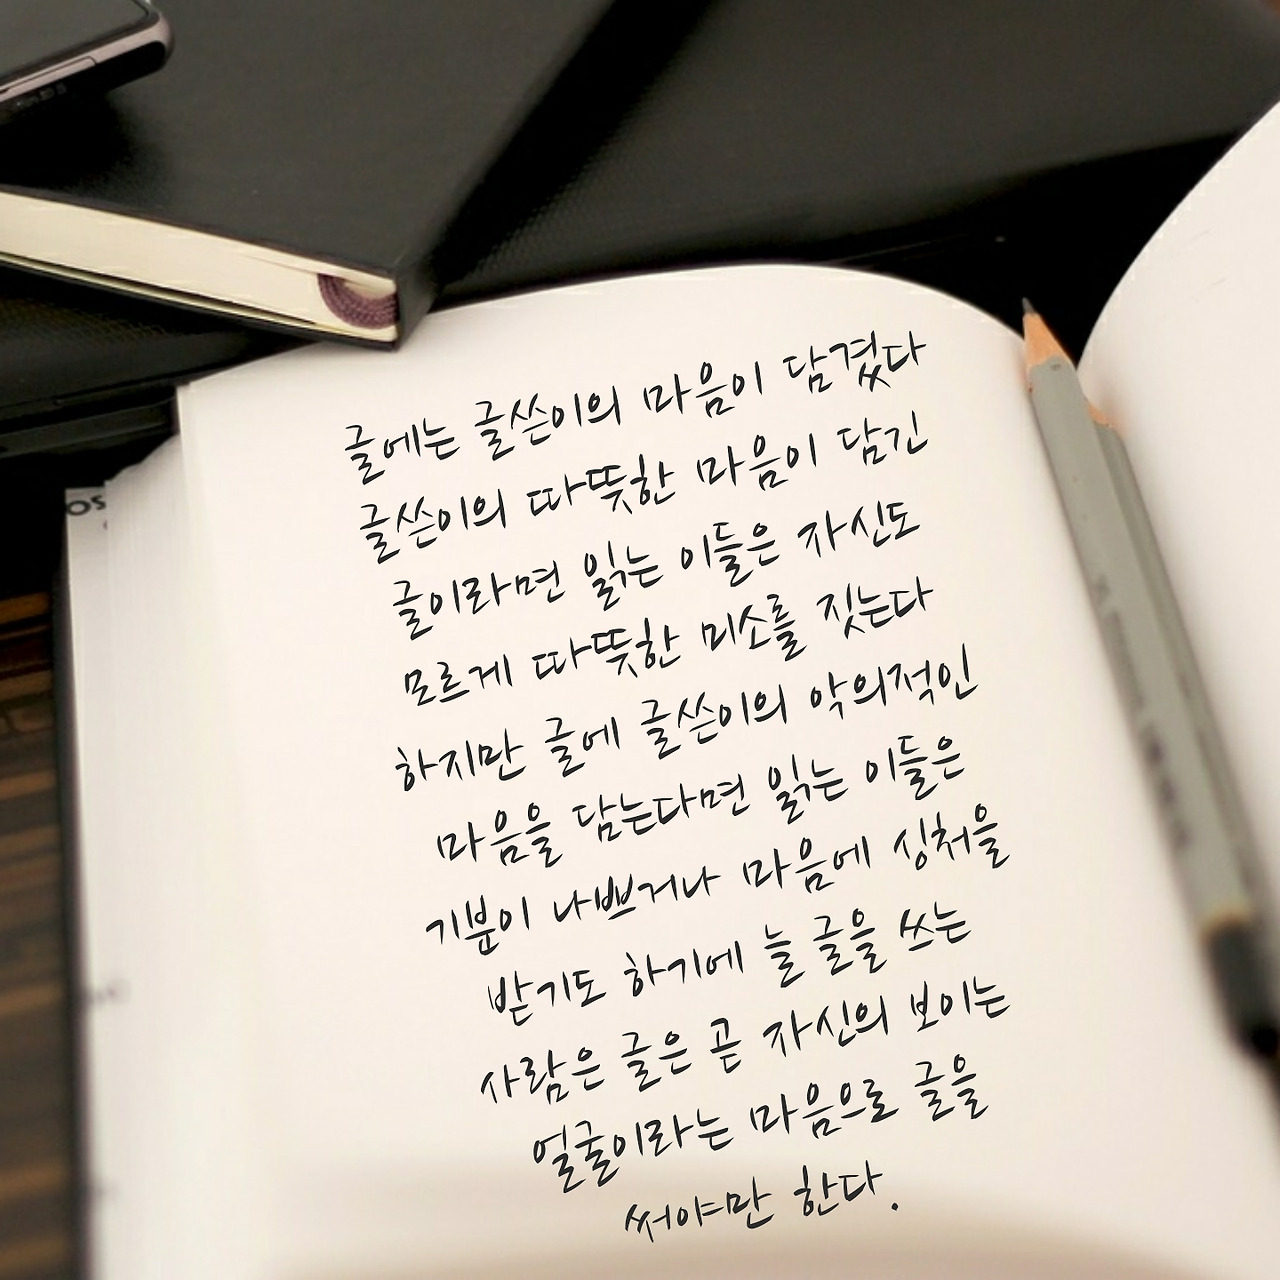 글에는 글쓴이의 마음이 담겼다
글쓴이의 따뜻한 마음이 담긴
글이라면 읽는 이들은 자신도
모르게 따뜻한 미소를 짓는다
하지만 글에 글쓴이의 악의적인
마음을 담는다면 읽는 이들은
기분이 나쁘거나 마음에 상처을
받기도 하기에 늘 글을 쓰는
사람은 글은 곧 자신의 보이는
얼굴이라는 마음으로 글을
써야만 한다.